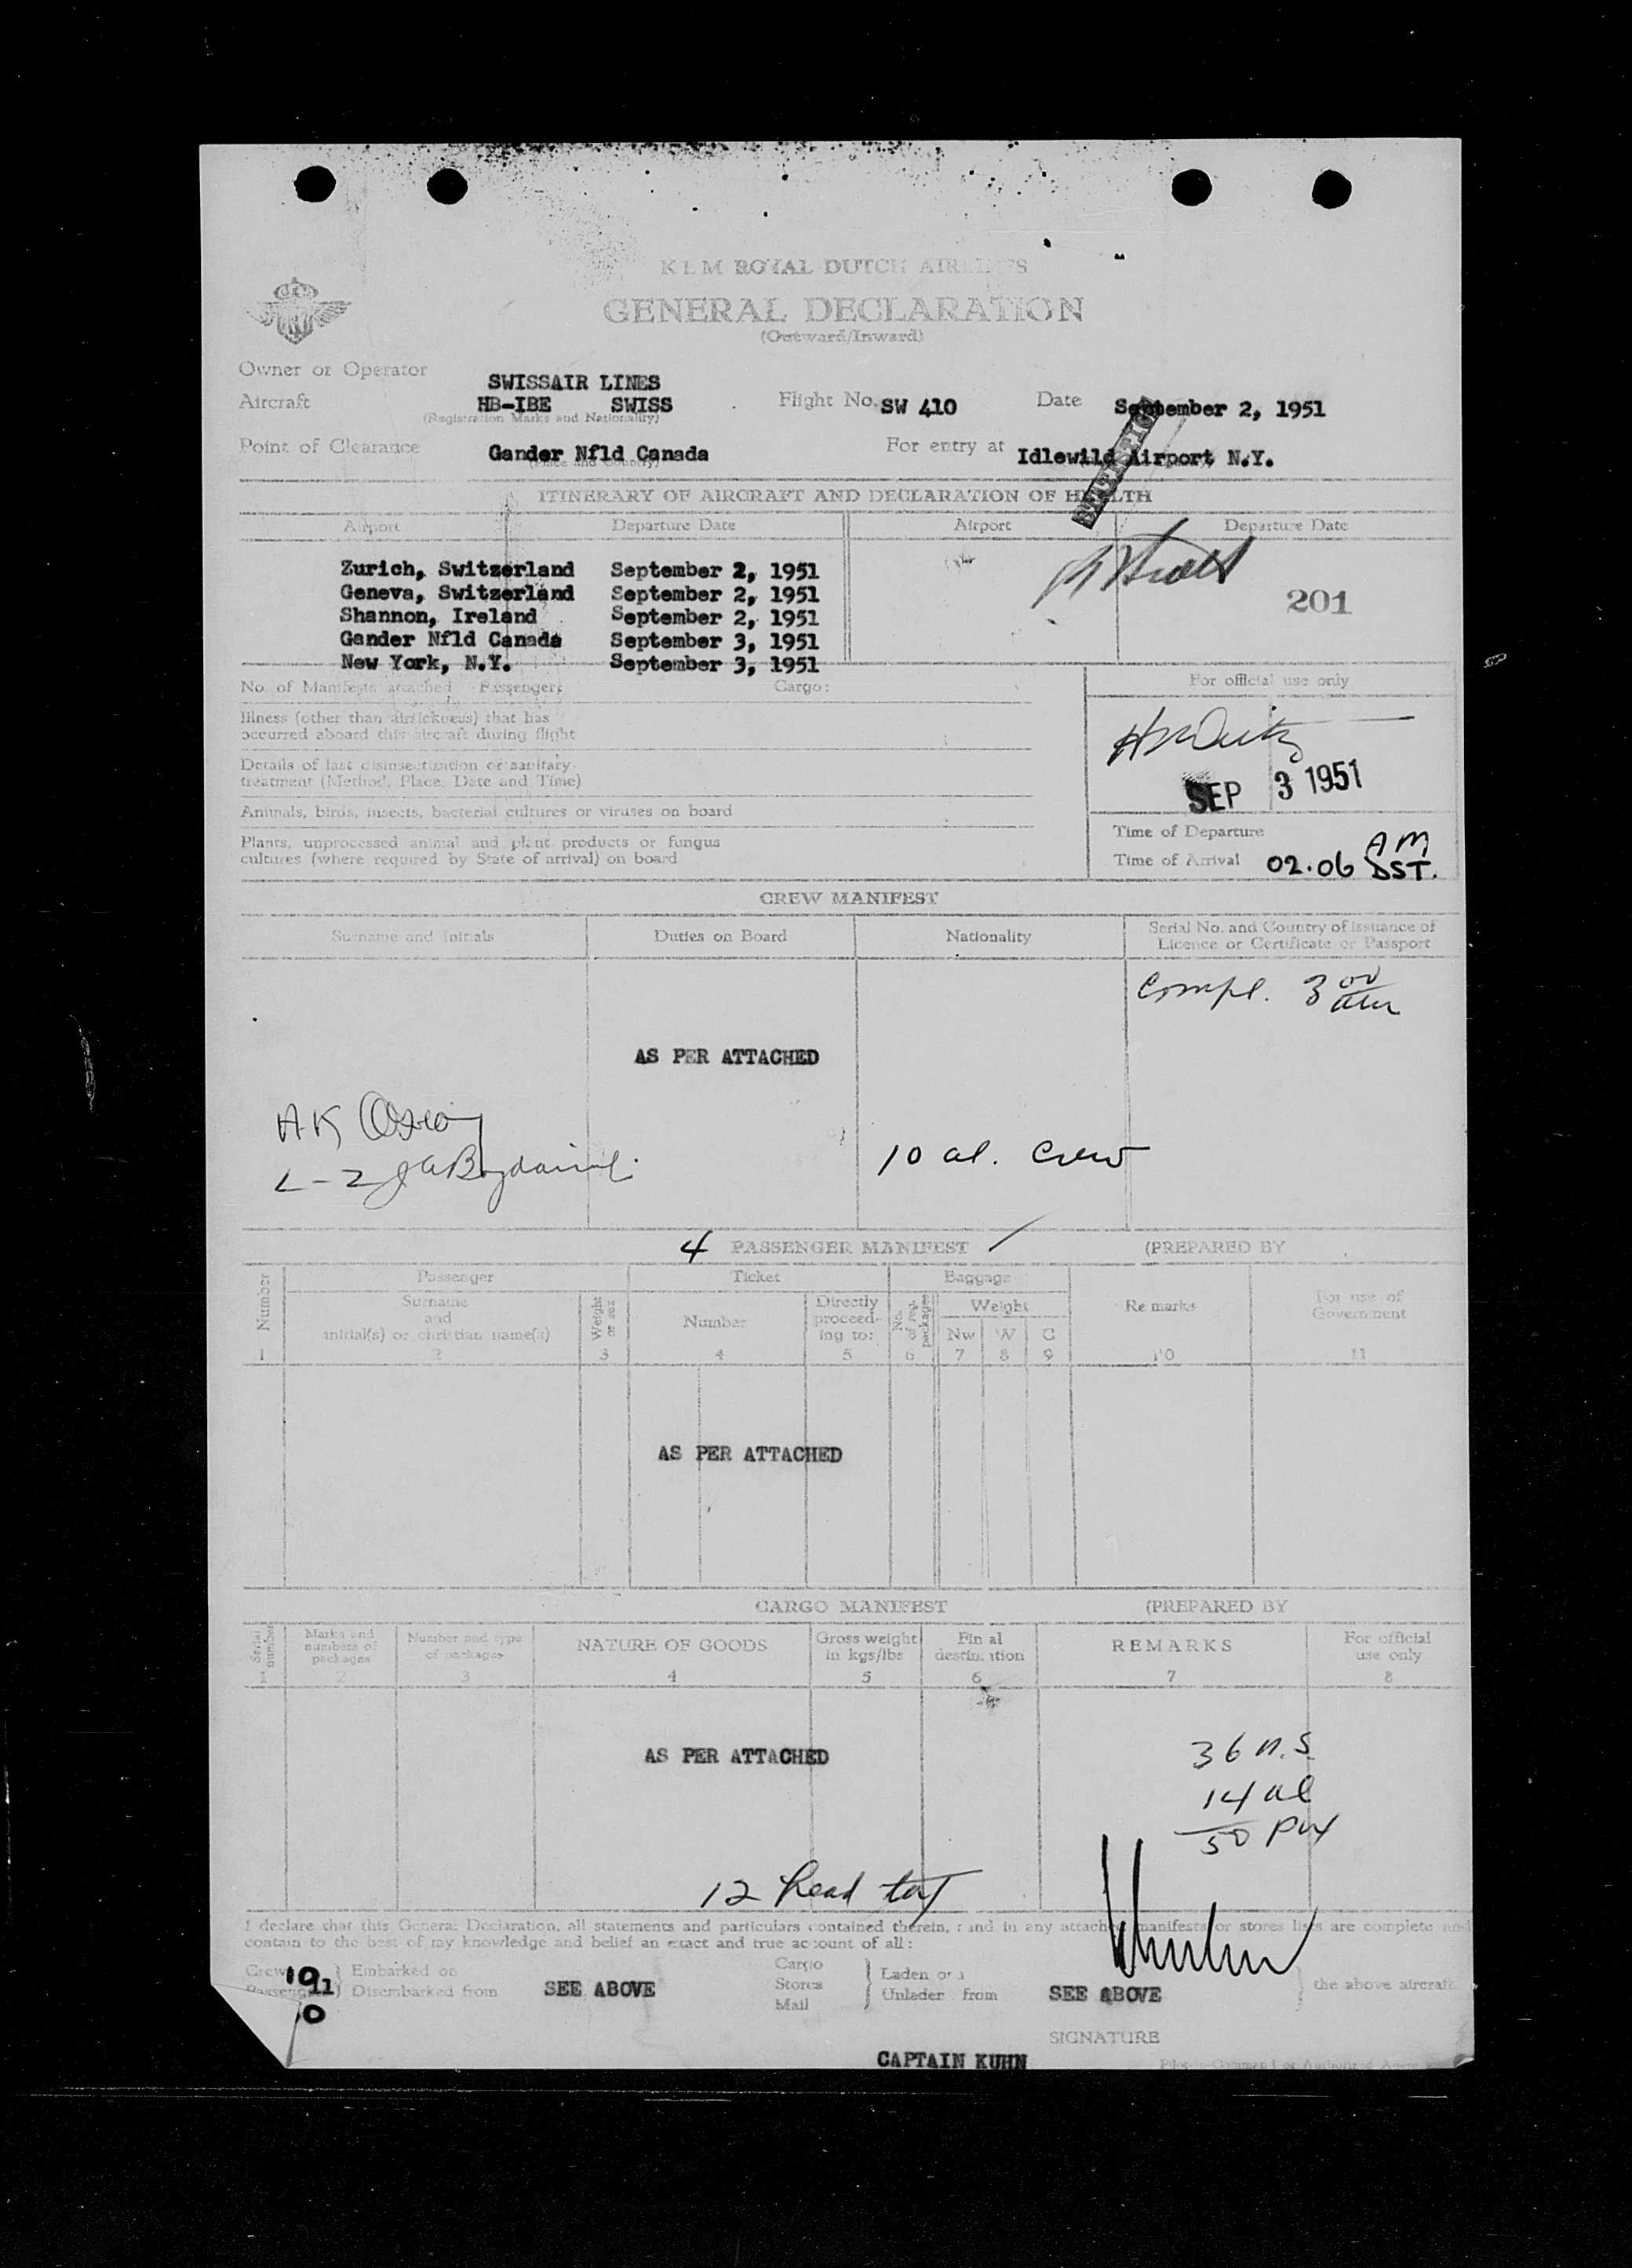 KLM ROYAL DUTCH AIRLINES
GENERAL DECLARATION
(Outward/Inward)
Owner or Operator SWISSAIR LINES
Aircraft HB-IBE SWISS Flight No. SW 410 Date September 2, 1951
(Registration Marks and Nationality)
Point of Clearance Gander Nfld Canada For entry at Idlewild Airport N.Y.
(Place and Country)
ITINERARY OF AIRCRAFT AND DECLARATION OF HEALTH
Airport Departure Date Airport Departure Date
Zurich, Switzerland September 2, 1951
Geneva, Switzerland September 2, 1951
201
Shannon, Ireland September 2, 1951
Gander Nfld Canada September 3, 1951
New York, N.Y. September 3, 1951
No. of Manifests attached Passenger: Cargo: For official use only
Illness (other than airsickness) that has
occurred aboard this aircraft during flight
Details of last disinsectization or sanitary
treatment (Method, Place, Date and Time)
SEP 3 1951
Animals, birds, insects, bacterial cultures or viruses on board
Plants, unprocessed animal and plant products or fungus
cultures (where required by State of arrival) on board
Time of Departure
Time of Arrival 02.06 AM DST.
CREW MANIFEST
Surname and Initials Duties on Board Nationality Serial No. and Country of Issuance of
Licence or Certificate or Passport
Compl. 3 00
AS PER ATTACHED
10 al. Crew
4 PASSENGER MANIFEST (PREPARED BY
Number Passenger Ticket Baggage
Surname
and
initial(s) or christian name(s)
Weight or sex
Number
Directly
proceed-
ing to:
No. of reg. packages
Weight
Nw W C
Remarks
For use of
Government
1 2 3 4 5 6 7 8 9 10 11
AS PER ATTACHED
CARGO MANIFEST (PREPARED BY
Serial number
Marks and
numbers of
packages
Number and type
of packages
NATURE OF GOODS
Gross weight
in kgs/lbs
Final
destination
REMARKS
For official
use only
1 2 3 4 5 6 7 8
AS PER ATTACHED
36 n.s.
14 al
50
12 head tax
I declare that this General Declaration, all statements and particulars contained therein, and in any attached manifests or stores lists are complete and
contain to the best of my knowledge and belief an exact and true account of all:
Crew 10 Embarked on
Passengers Disembarked from SEE ABOVE
Cargo
Stores
Mail
Laden on
Unladen from SEE ABOVE the above aircraft.
SIGNATURE
CAPTAIN KUHN